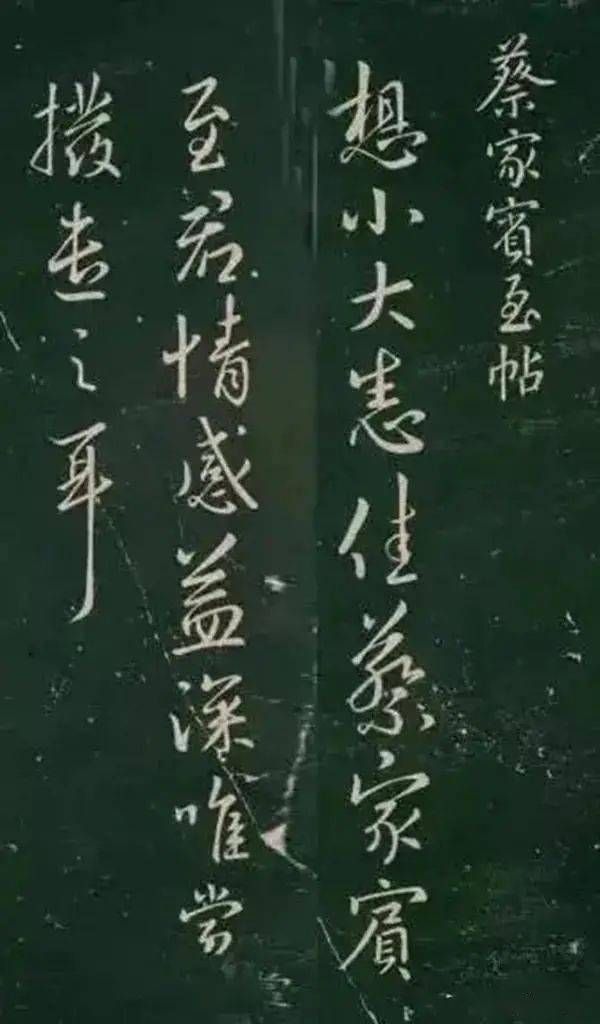 蔡家賓至帖
想小大悉佳蔡家賓
至君情感益深唯當
撥遣之耳